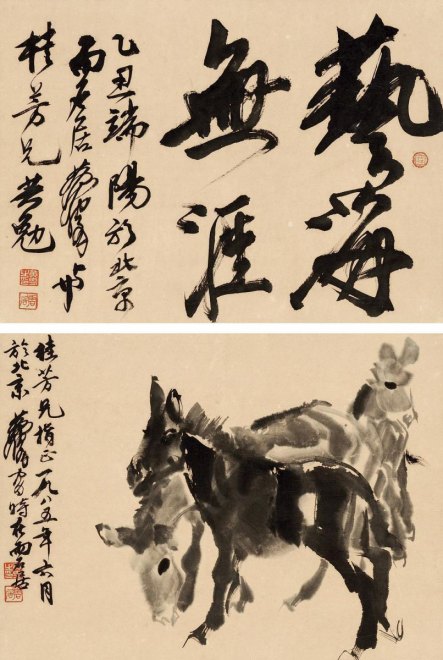 藝海
無涯
乙丑端陽於北京
雨石居黃胄
桂芳兄共勉
桂芳兄指正一九八五年六月
於北京黃胄寫時在雨石居